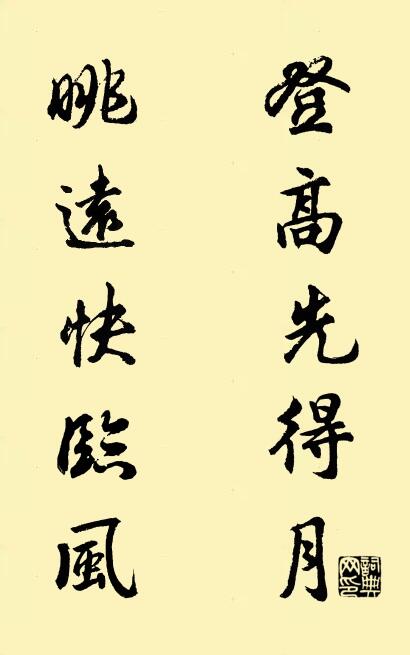 登高先得月
眺遠快臨風
詞典網印